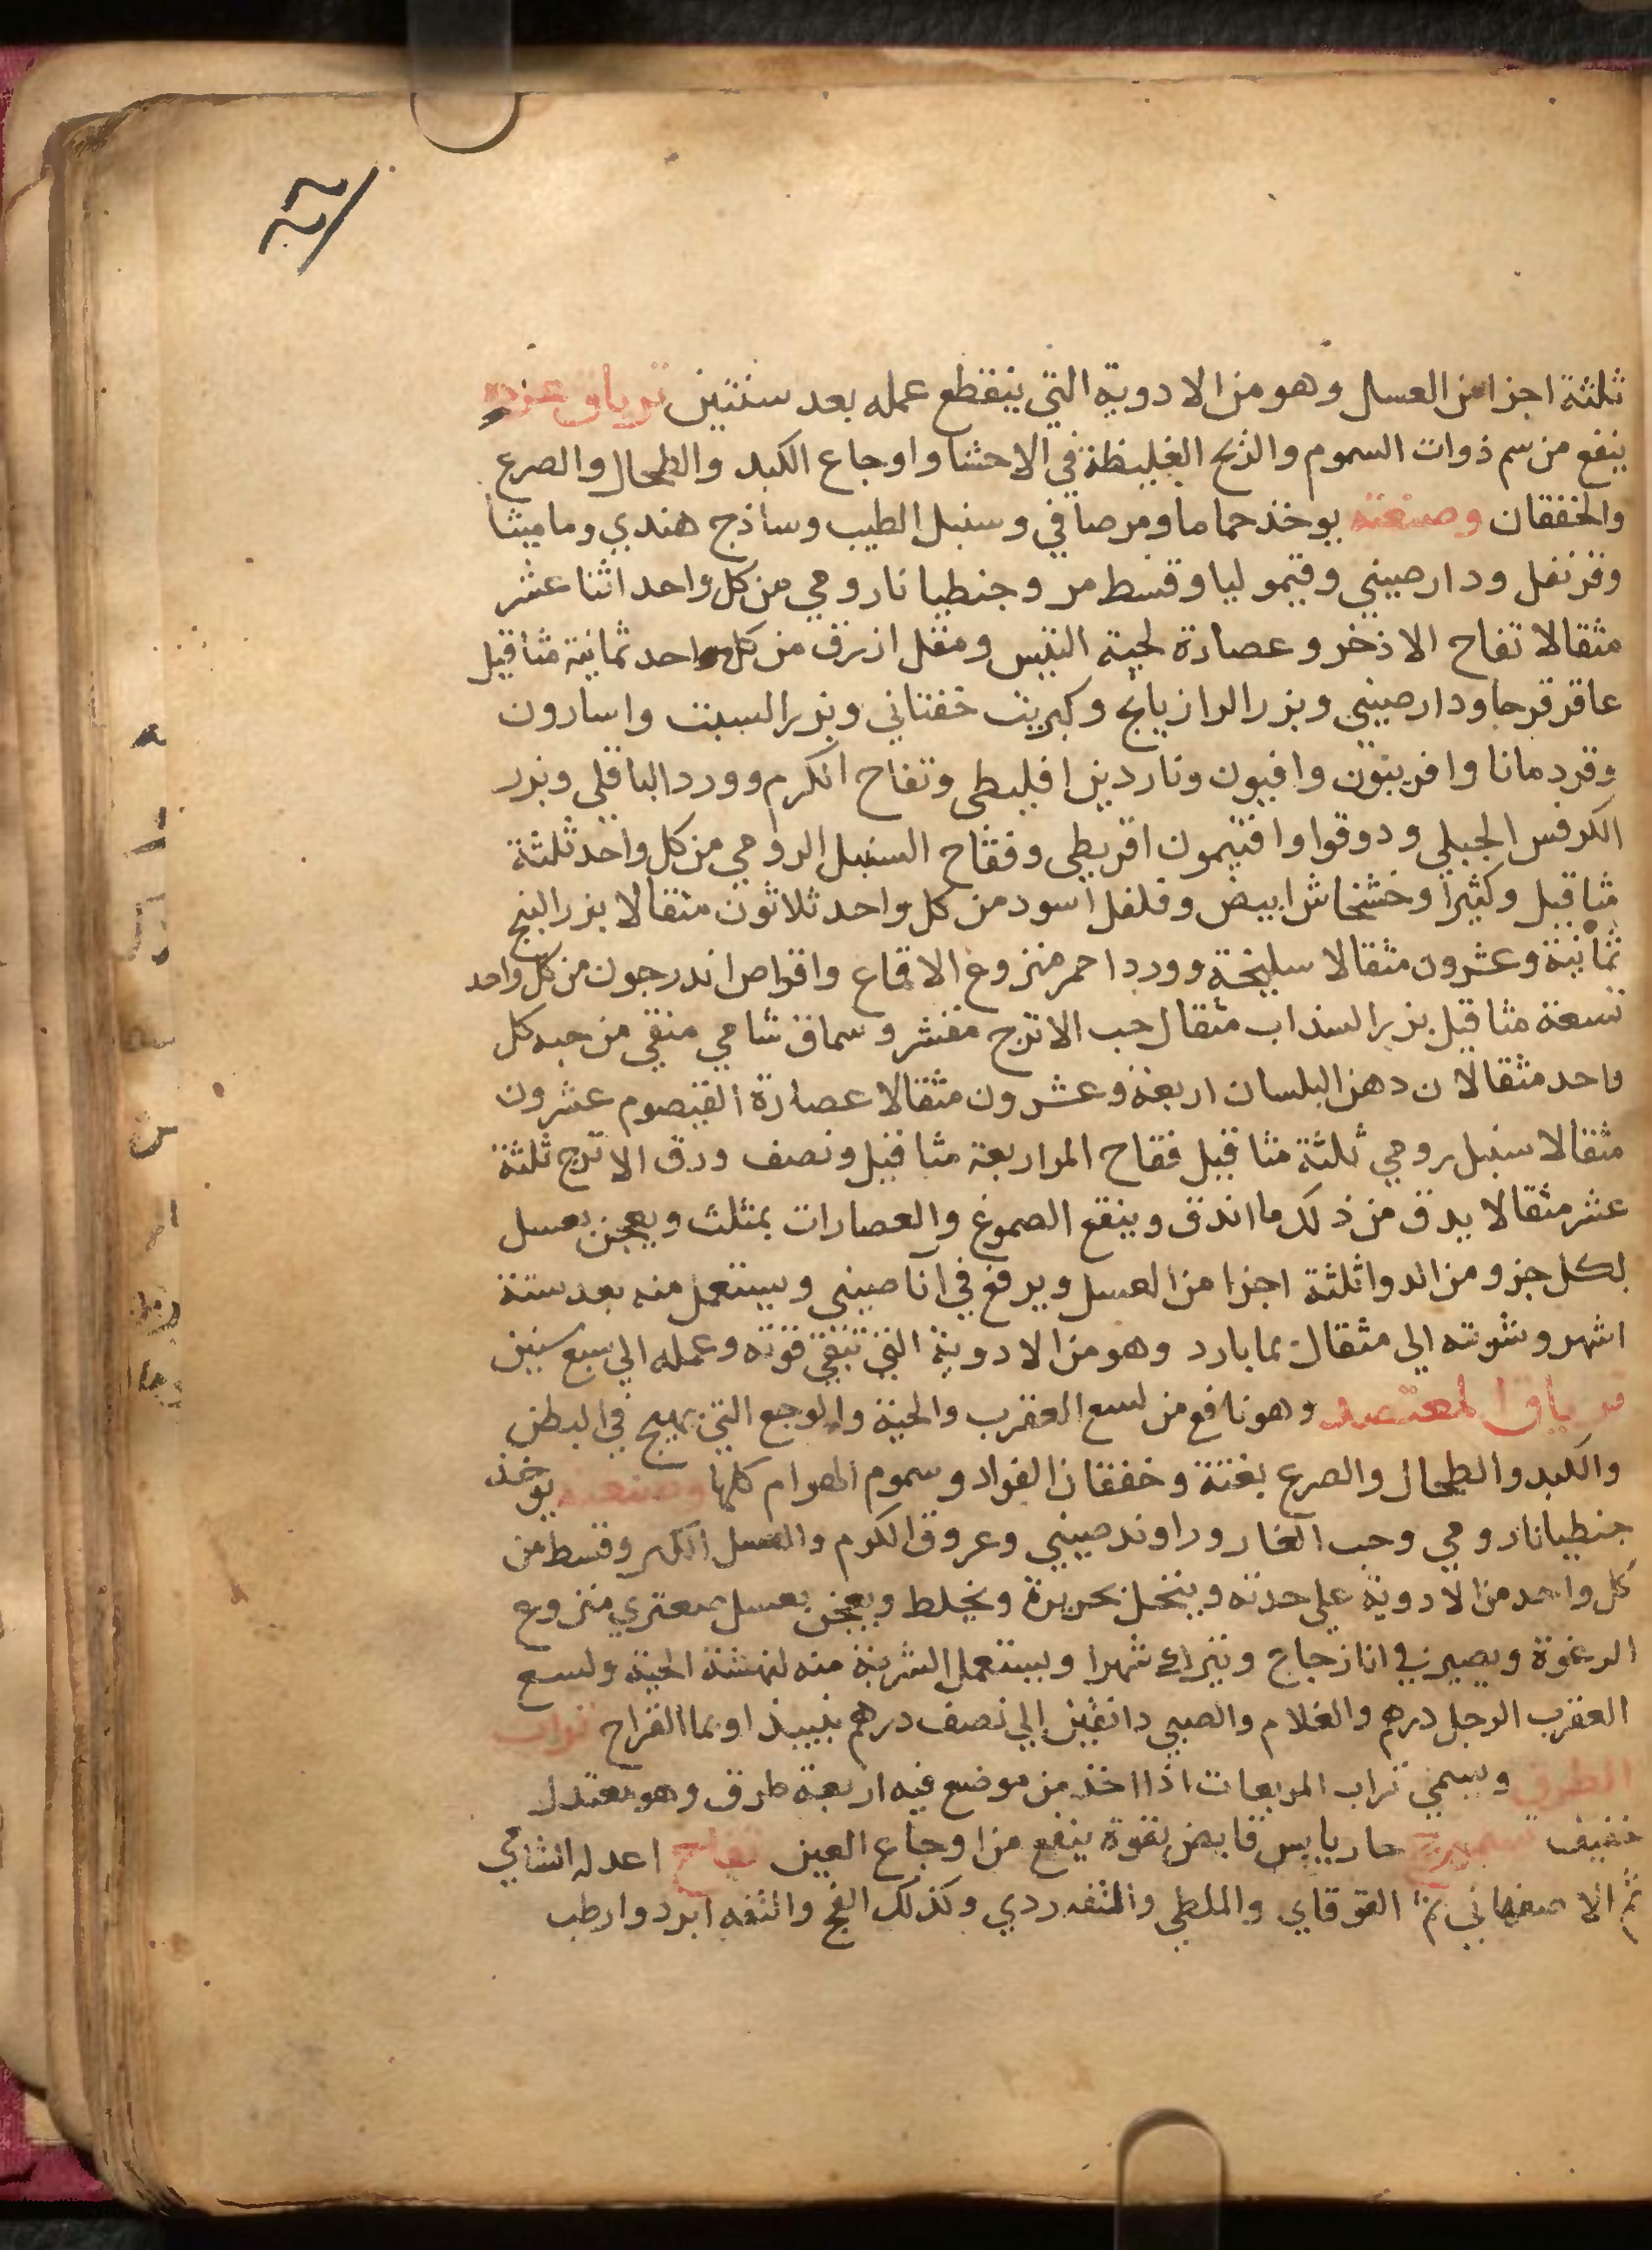 ثلثة اجزا من العسل وهو من الادوية التي ينقطع عمله بعد سنتين ترياق عزره
ينفع من سم ذوات السموم والذبح الغليظة في الاحشا واوجاع الكبد والطحال والصرع
والخفقان وصنعته يوخذ حماما ومر صافي وسنبل الطيب وساذج هندي وماميثا
وقرنفل ودارصيني وقيموليا وقسط مر وجنطيانا رومي من كل واحد اثنا عشر
مثقالا تفاح الاذخر وعصارة لحية التيس ومقل ازرق من كل واحد ثمانية مثاقيل
عاقرقرحا ودارصيني وبزر الرازيانج وكبريت خفتاني وبزر السبت واسارون
وقردمانا وافربيون وافيون وناردين افليطى وتفاح الكرم وورد الباقلي وبزر
الكرفس الجبلي ودوقوا وافتيمون اقريطي وفقاح السنبل الرومي من كل واحد ثلثة
مثاقيل وكثيرا وخشخاش ابيض وفلفل اسود من كل واحد ثلاثون مثقالا بزر البنج
ثمانية وعشرون مثقالا سليخة وورد احمر منزوع الاقماع واقراص اندرجون من كل واحد
تسعة مثاقيل بزر السذاب مثقال حب الاترج مقشر وسماق شامي منقي من حبه كل
واحد مثقالان دهن البلسان اربعة وعشرون مثقالا عصارة القيصوم عشرون
مثقالا سنبل رومي ثلثة مثاقيل فقاح المر اربعة مثاقيل ونصف ورق الاترج ثلثة
عشر مثقالا يدق من ذلك ما اندق وينقع الصموغ والعصارات بمثلث ويعجن بعسل
لكل جزو من الدوا ثلثة اجزا من العسل ويرفع في انا صيني ويستعمل منه بعد ستة
اشهر وشربته الي مثقال بما بارد وهو من الادوية التي تبقي قوته وعمله الي سبع سنين
ترياق المعتصد وهو نافع من لسع العقرب والحية والوجع التي يهيج في البطن
والكبد والطحال والصرع بغتة وخفقان الفواد وسموم الهوام كلها وصنعته يوخذ
جنطيانا رومي وحب الغار وراوند صيني وعروق الكرم والعسل الكبر وقسط من
كل واحد من الادوية علي حدته وينخل بحريرة ويخلط ويعجن بعسل صعتري منزوع
الرغوة ويصير في انا زجاج ويترك شهرا ويستعمل الشربة منه لنهشة الحية ولسع
العقرب الرجل درهم والغلام والصبي دانقين الي نصف درهم بنبيذ او بما القراح تراب
الطرق ويسمي تراب المربعات اذا اخذ من موضع فيه اربعة طرق وهو معتدل
خفيف حار يابس قابض بقوة ينفع من اوجاع العين تفاح اعدله الشامي
ثم الاصفهاني ثم القوقاي والملطي والتفه ردي وكذلك الفج والتفه ابرد وارطب